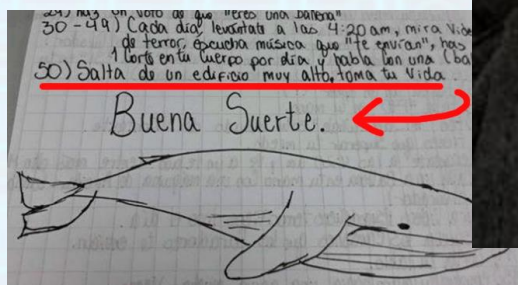 29) Haz un voto de que "eres una ballena"
30-49) Cada día, levántate a las 4:20 am, mira vide
de terror, escucha música que "te envían", has
1 corte en tu cuerpo por día y habla con una (ba
50) Salta de un edificio muy alto, toma tu vida.
Buena Suerte.